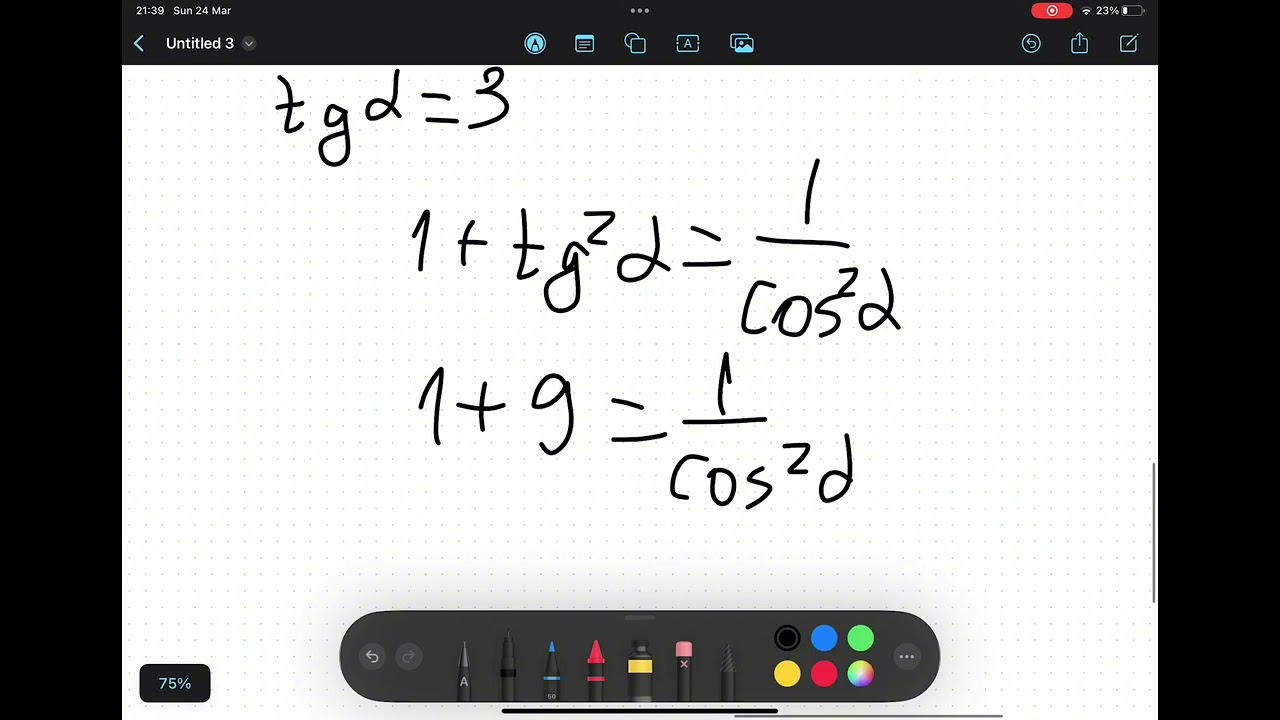 21:39 Sun 24 Mar
23%
Untitled 3
tg α = 3
1 + tg² α = 1/cos² α
1 + 9 = 1/cos² α
A
50
75%